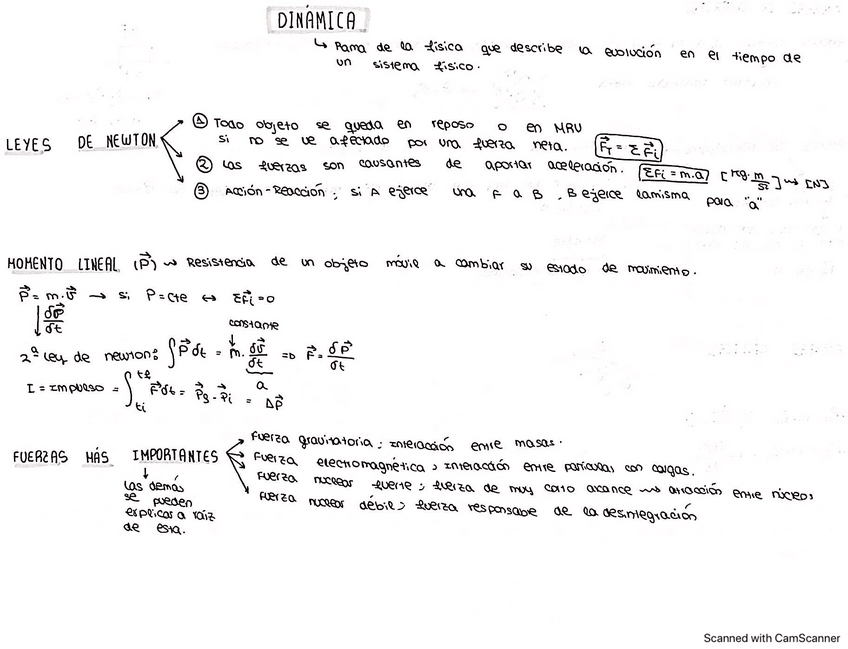 DINÁMICA
↳ Rama de la física que describe la evolución en el tiempo de
un sistema físico.
LEYES DE NEWTON
① Todo objeto se queda en reposo o en MRU
si no se ve afectado por una fuerza neta. F⃗T = ΣF⃗i
② Las fuerzas son causantes de aportar aceleración. ΣFi = m.a [kg. m/s²] → [N]
③ Acción-Reacción; si A ejerce una F a B, B ejerce la misma para "a"
MOMENTO LINEAL (P⃗) → Resistencia de un objeto móvil a cambiar su estado de movimiento.
P⃗ = m.v⃗ → si P = cte ↔ ΣF⃗i = 0
↓ δP⃗/δt
constante
2ª Ley de newton: ∫P⃗ δt = m. δv⃗/δt => F⃗ = δP⃗/δt
a
I = Impulso = ∫ti tf F⃗ δt = P⃗f - P⃗i = ΔP⃗
FUERZAS MÁS IMPORTANTES
Fuerza gravitatoria; interacción entre masas.
Fuerza electromagnética; interacción entre partículas con cargas.
Fuerza nuclear fuerte; fuerza de muy corto alcance → atracción entre núcleos
Fuerza nuclear débil; fuerza responsable de la desintegración
Las demás
se pueden
explicar a raíz
de esta.
Scanned with CamScanner